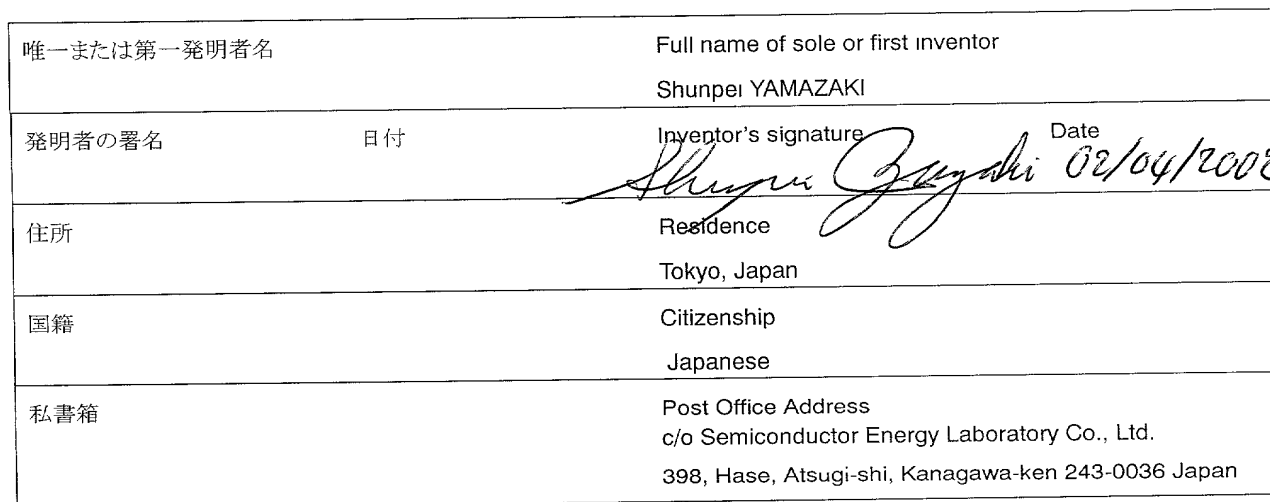 唯一または第一発明者名
Full name of sole or first inventor
Shunpei YAMAZAKI
発明者の署名 日付
Inventor's signature Date
Shunpei 02/04/2002
住所
Residence
Tokyo, Japan
国籍
Citizenship
Japanese
私書箱
Post Office Address
c/o Semiconductor Energy Laboratory Co., Ltd.
398, Hase, Atsugi-shi, Kanagawa-ken 243-0036 Japan